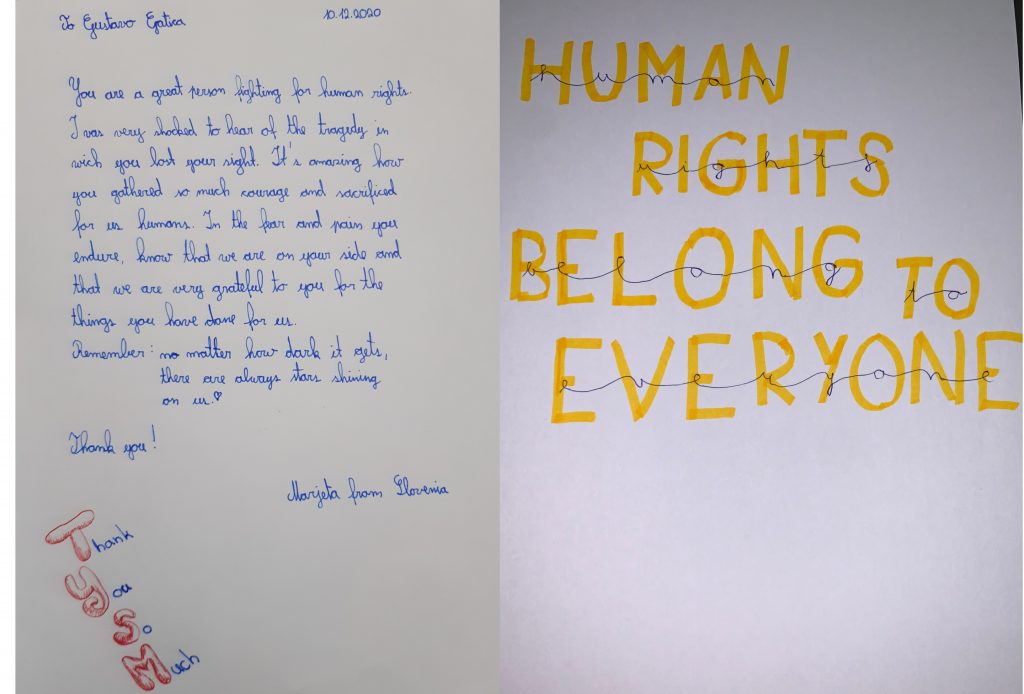 To Gustavo Gatica
10.12.2020
You are a great person fighting for human rights.
I was very shocked to hear of the tragedy in
wich you lost your sight. It's amazing how
you gathered so much courage and sacrificed
for us humans. In the fear and pain you
endure, know that we are on your side and
that we are very grateful to you for the
things you have done for us.
Remember: no matter how dark it gets,
there are always stars shining
on us.♡
Thank you!
Marjeta from Slovenia
Thank
You
So
Much
HUMAN
human
RIGHTS
rights
BELONG TO
belong to
EVERYONE
everyone